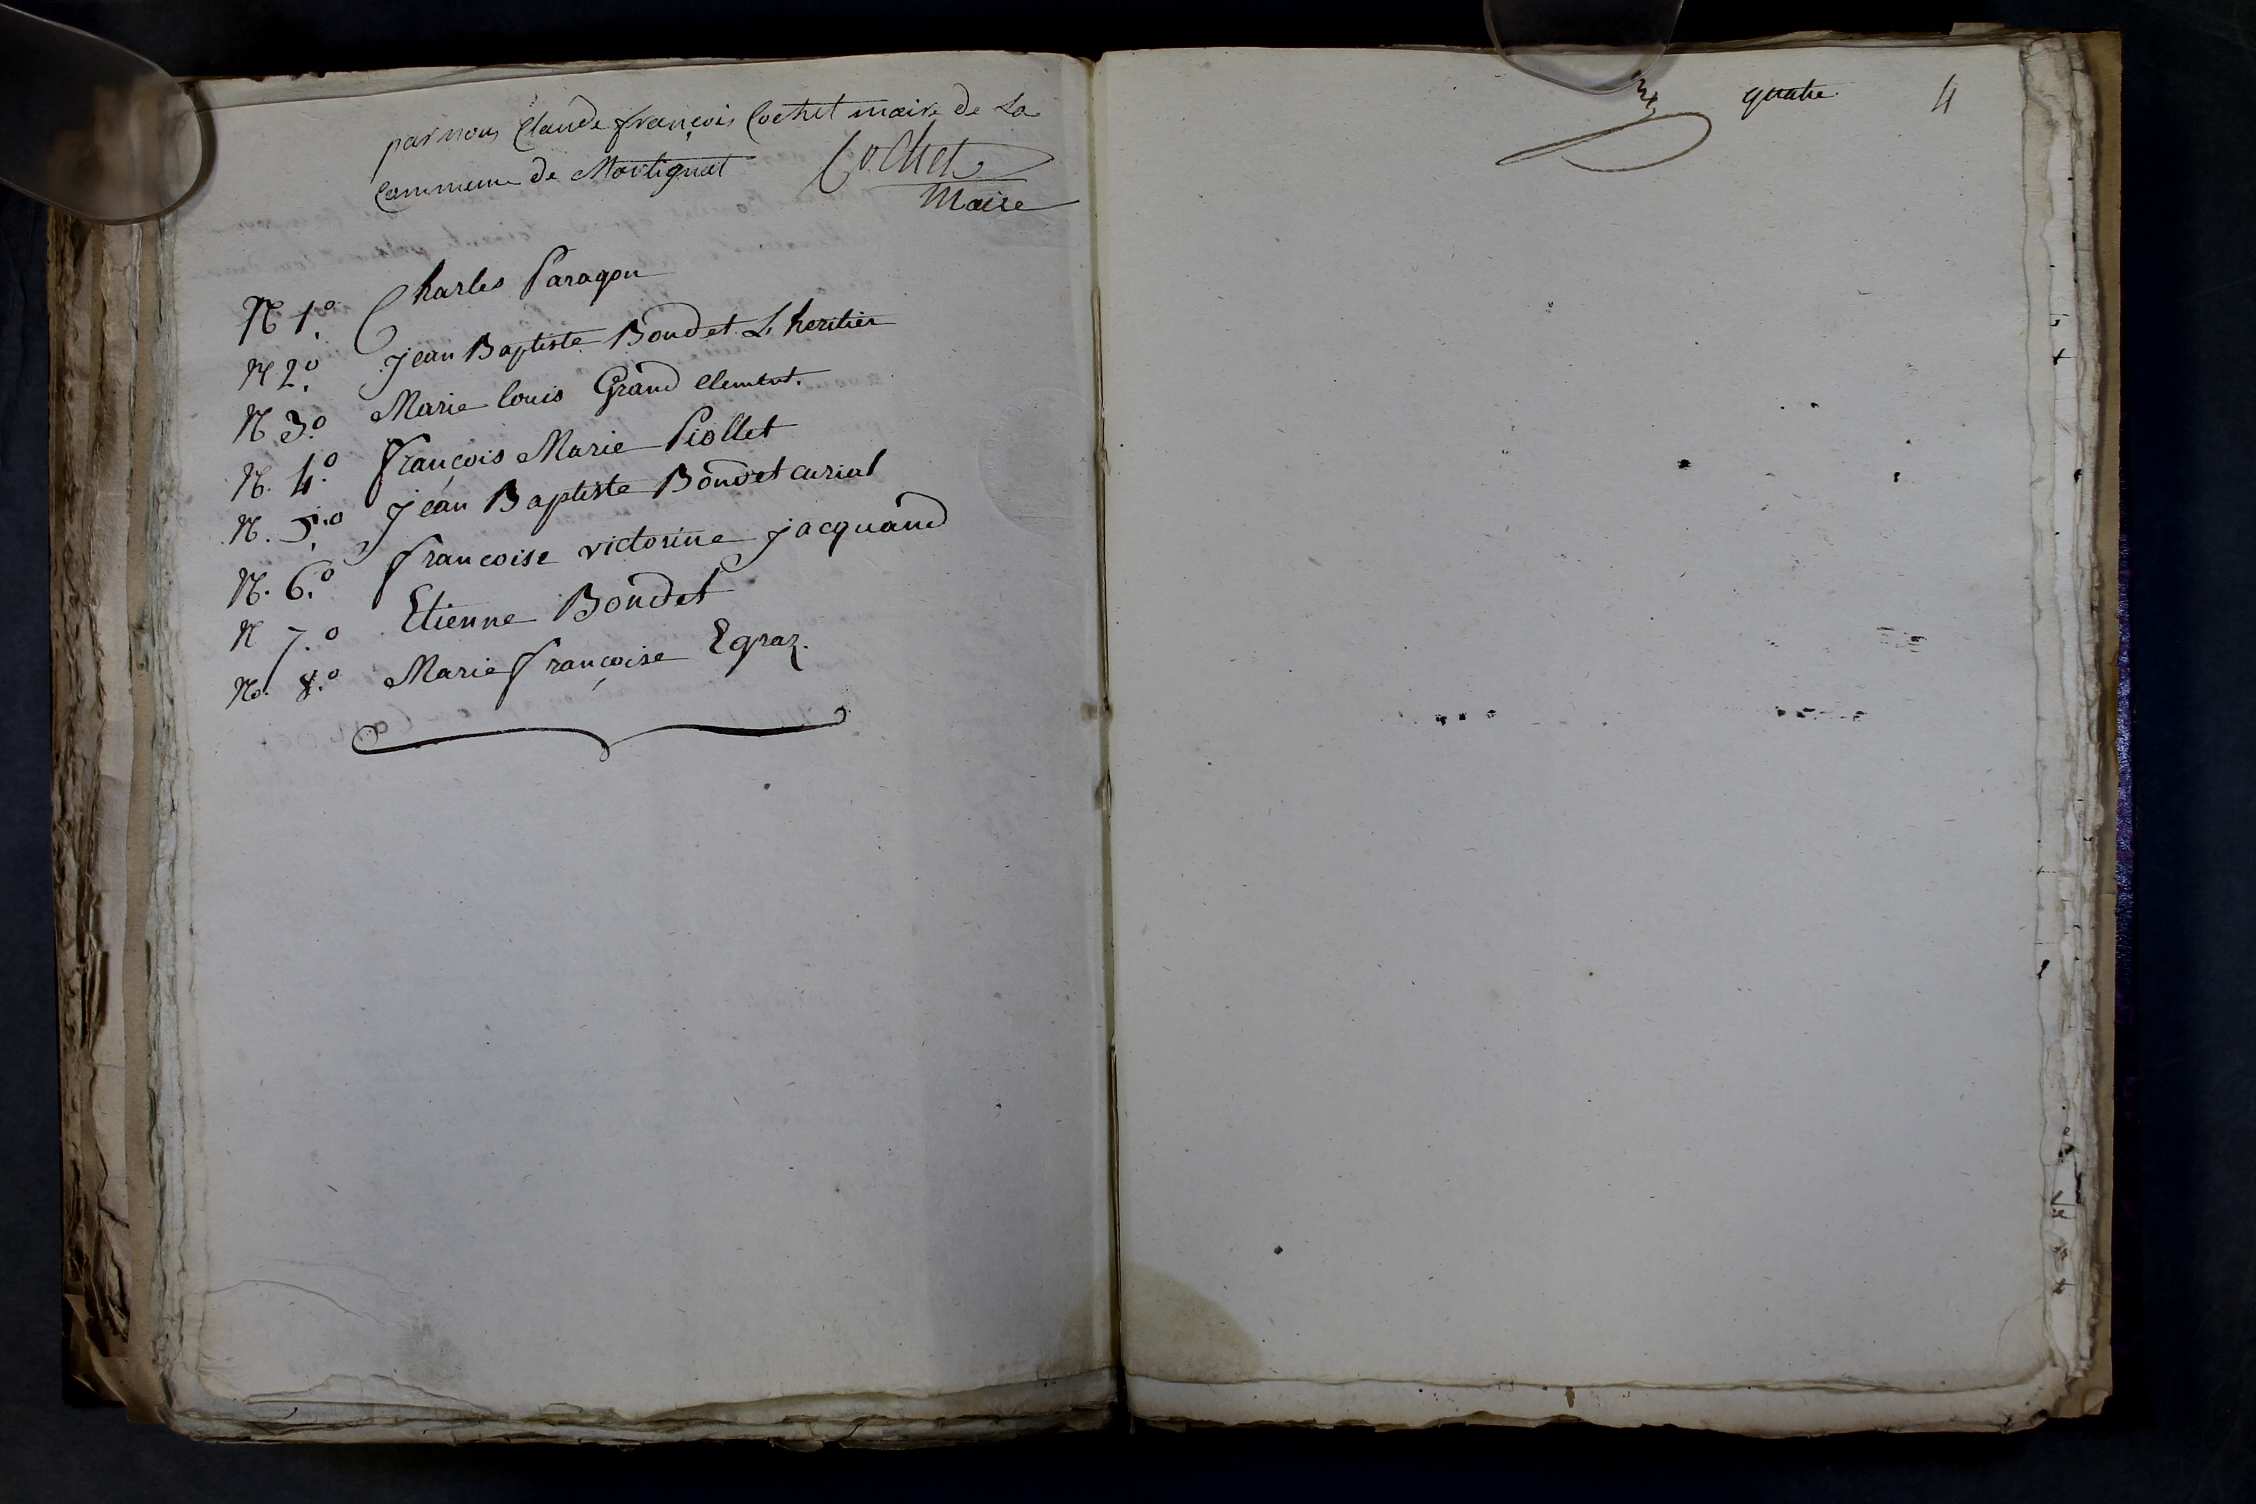 par nous Claude françois Cochet maire de La
Commune de Martignat Cochet
Maire
N 1.º Charles Paragon
N 2.º Jean Baptiste Bondet L'heritier
N 3.º Marie louis Grand Clement.
N. 4.º françois Marie Piollet
N. 5.º Jean Baptiste Bondet curial
N. 6.º francoise victorine jacquand
N 7.º Etienne Bondet
N. 8.º Marie françoise Egraz.
quatre 4